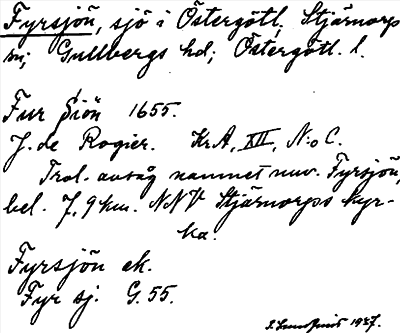 Fyrsjön, sjö i Östergötl. Stjärnorps
sn, Gullbergs hd, Östergötl. l.
Fur Siön 1655.
J. de Rogier. Kr A, XII, N:o C.
Trol. avsåg namnet nuv. Fyrsjön,
bel. 7,9 km. NNV Stjärnorps kyr-
ka.
Fyrsjön ek.
Fyr sj. G. 55.
1927.